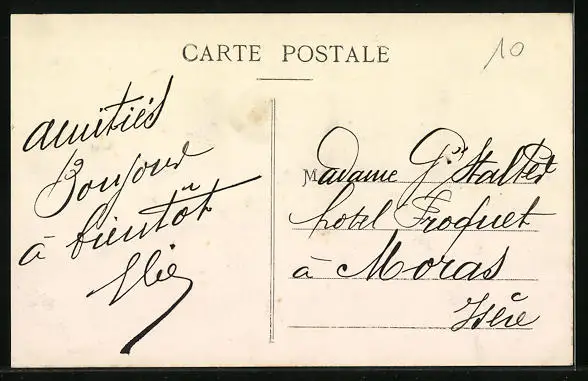 CARTE POSTALE
10
amitiés
Bonjour
à bientôt
Elie
Madame Gve Stalter
hotel Froquet
à Moras
Isère